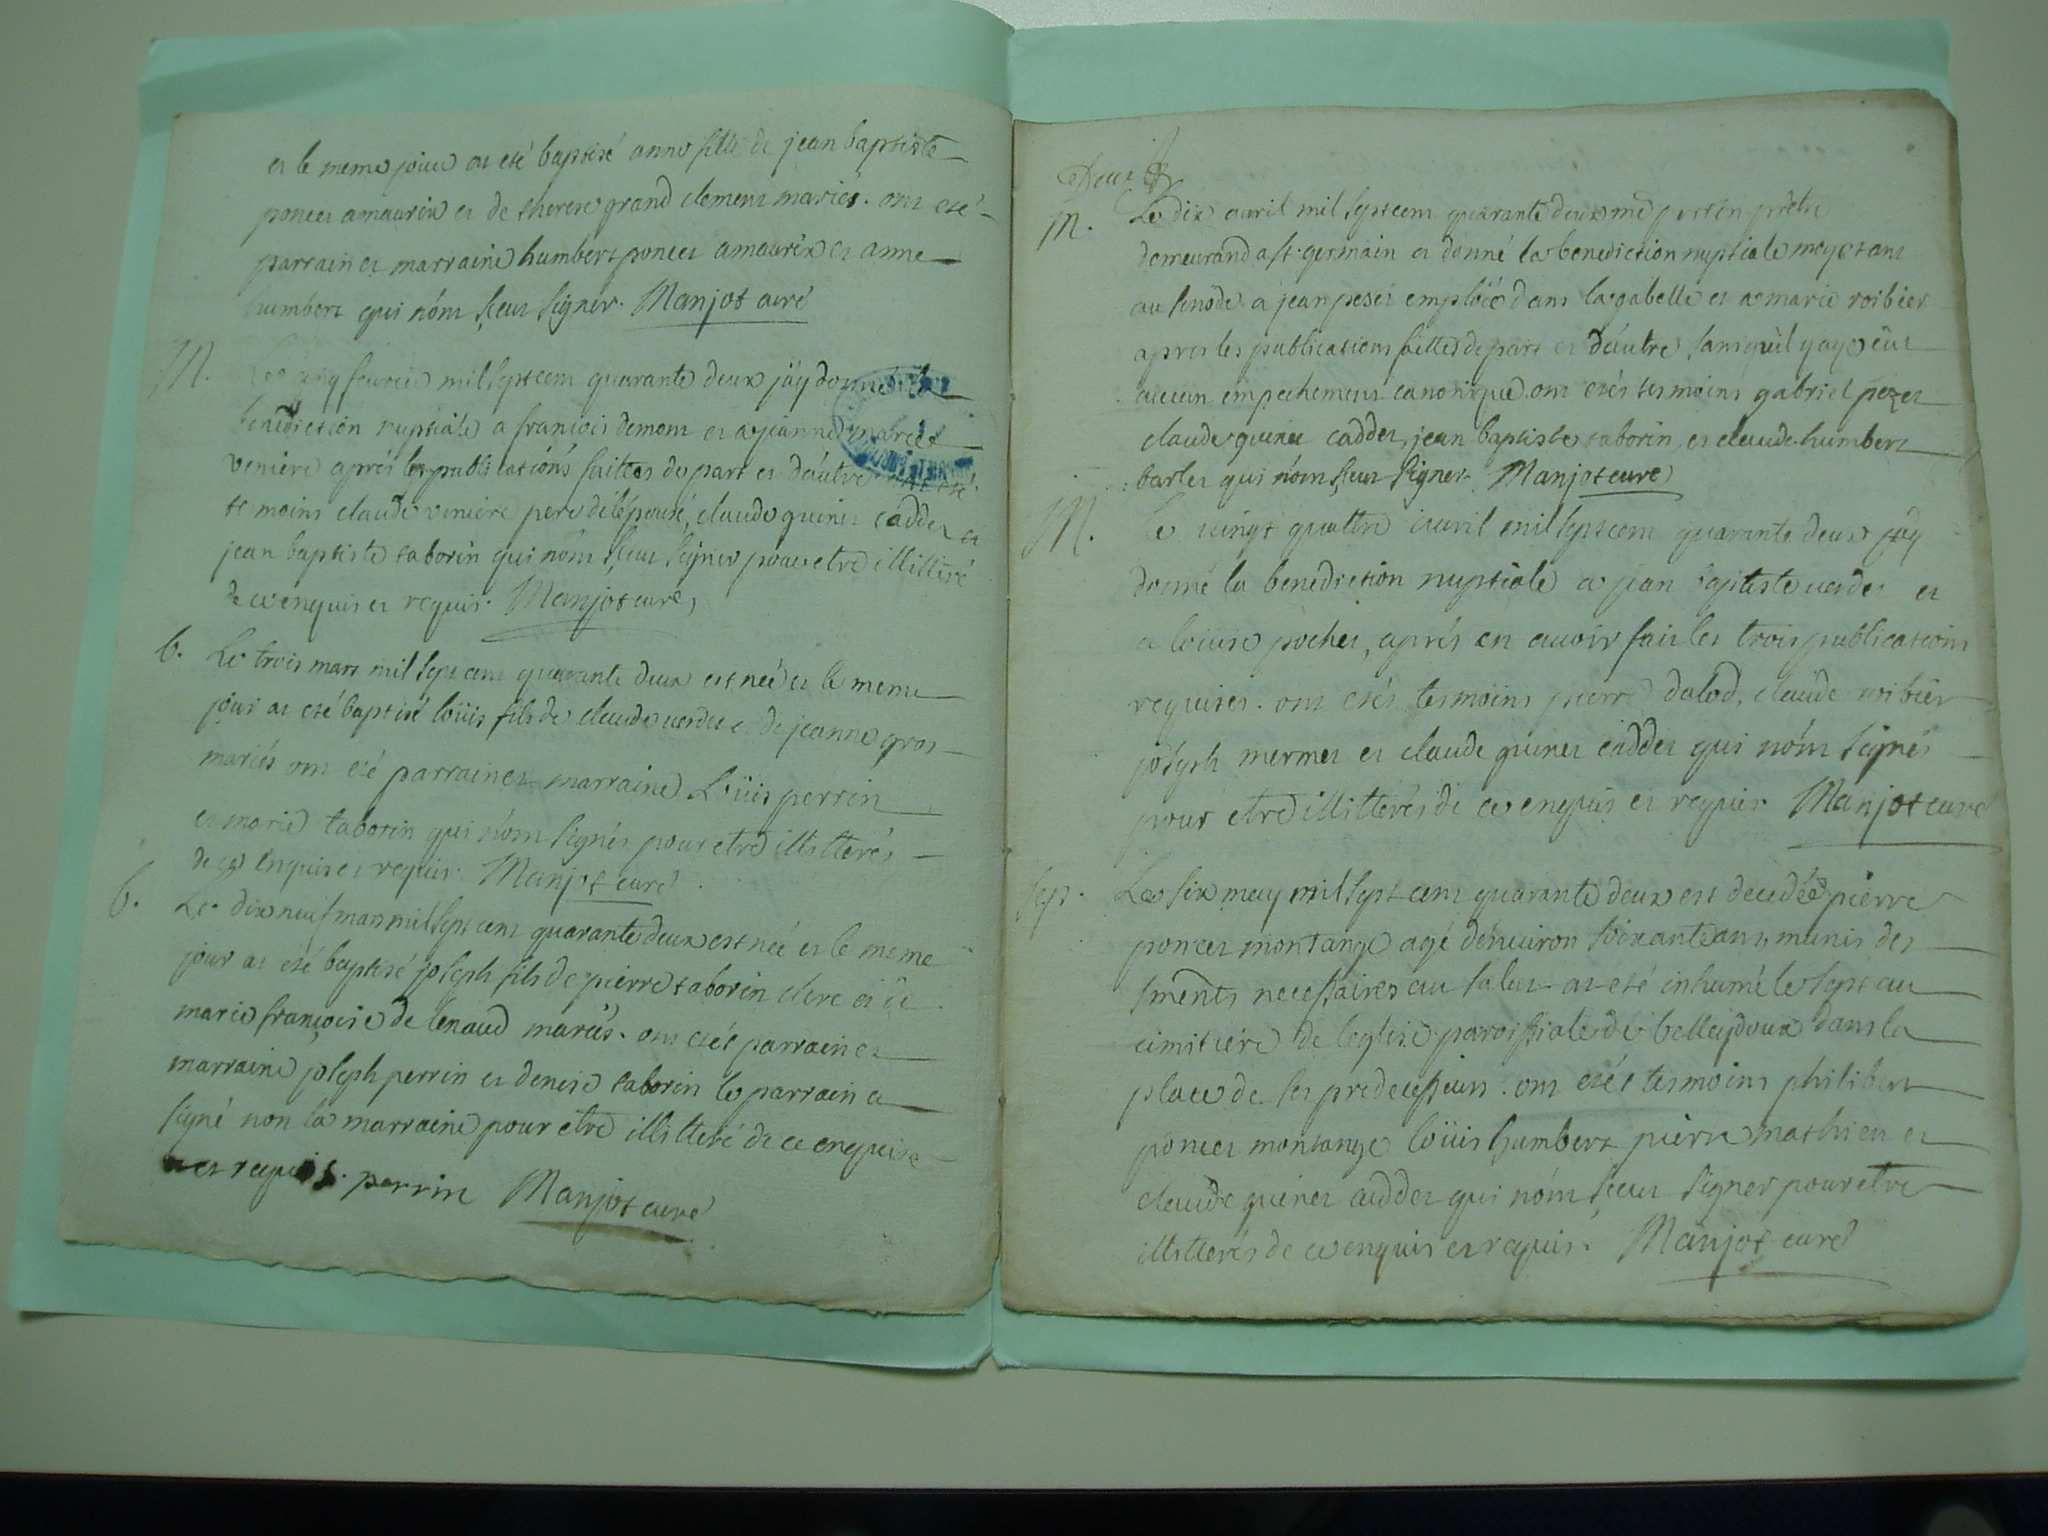 et le meme jour at eté baptisé anne fille de jean baptiste
poncet amaurix et de therese grand clement mariés. ont eté
parrain et marraine humbert poncet amaurix et anne
humbert qui n'ont sceu signer. Manjot curé
M. Le cinq fevrier mil sept cent quarante deux j'ay donné la
benediction nuptiale a francois demont et a jeanne marcet
veniere aprés les publications faittes de part et d'autre ont eté
temoins claude veniere pere de l'épousé, claude guinet cadet et
jean baptiste taborin qui n'ont sceu signer pour etre illitteré
de ce enquis et requis. Manjot curé
b. Le trois mars mil sept cent quarante deux est neé et le meme
jour at eté baptisé loüis fils de claude verdet et de jeanne gros
mariés ont eté parrain et marraine Loüis perrin
et marie taborin qui n'ont signés pour etre illitterés
de ce enquis et requis. Manjot curé
b. Le dix neuf mars mil sept cent quarante deux est neé et le meme
jour at eté baptisé joseph fils de pierre taborin clerc et de
marie françoise de lenaud mariés. ont etés parrain et
marraine joseph perrin et denise taborin le parrain a
signé non la marraine pour etre illitteré de ce enquise
et requis. perrin Manjot curé
Deux
M. Le dix avril mil sept cent quarante deux mre prètre
demeurand a st. germain at donné la benediction nuptiale moy etant
au sinode a jean peset emploïé dans la gabelle et a marie roibier
apres les publications faittes de part et d'autre sans qu'il y aye eüt
aucun empechement canonique. ont etés tesmoins gabriel pezet
claude guinet caddet, jean baptiste taborin et claude humbert
barlet qui n'ont sceu signer. Manjot curé
M. Le vingt quattre avril mil sept cent quarante deux j'ay
donné la benediction nuptiale a jean baptiste verdet et
a louise pochet, aprés en avoir fait les trois publications
requises. ont etés tesmoins pierre dalod, claude roibier
joseph mermet et claude guinet caddet qui n'ont signés
pour etre illitterés de ce enquis et requis. Manjot curé
sep. Le six may mil sept cent quarante deux est decedée pierre
poncet montange agé d'environ soixante ans munis des
sments necessaires au salut at eté inhumé le sept au
cimitiere de l'eglise paroissiale de belleydoux dans la
place de ses predecesseurs. ont etés tesmoins philibert
poncet montange loüis humbert pierre mathieu et
claude guinet caddet qui n'ont sceu signer pour etre
illitterés de ce enquis et requis. Manjot curé